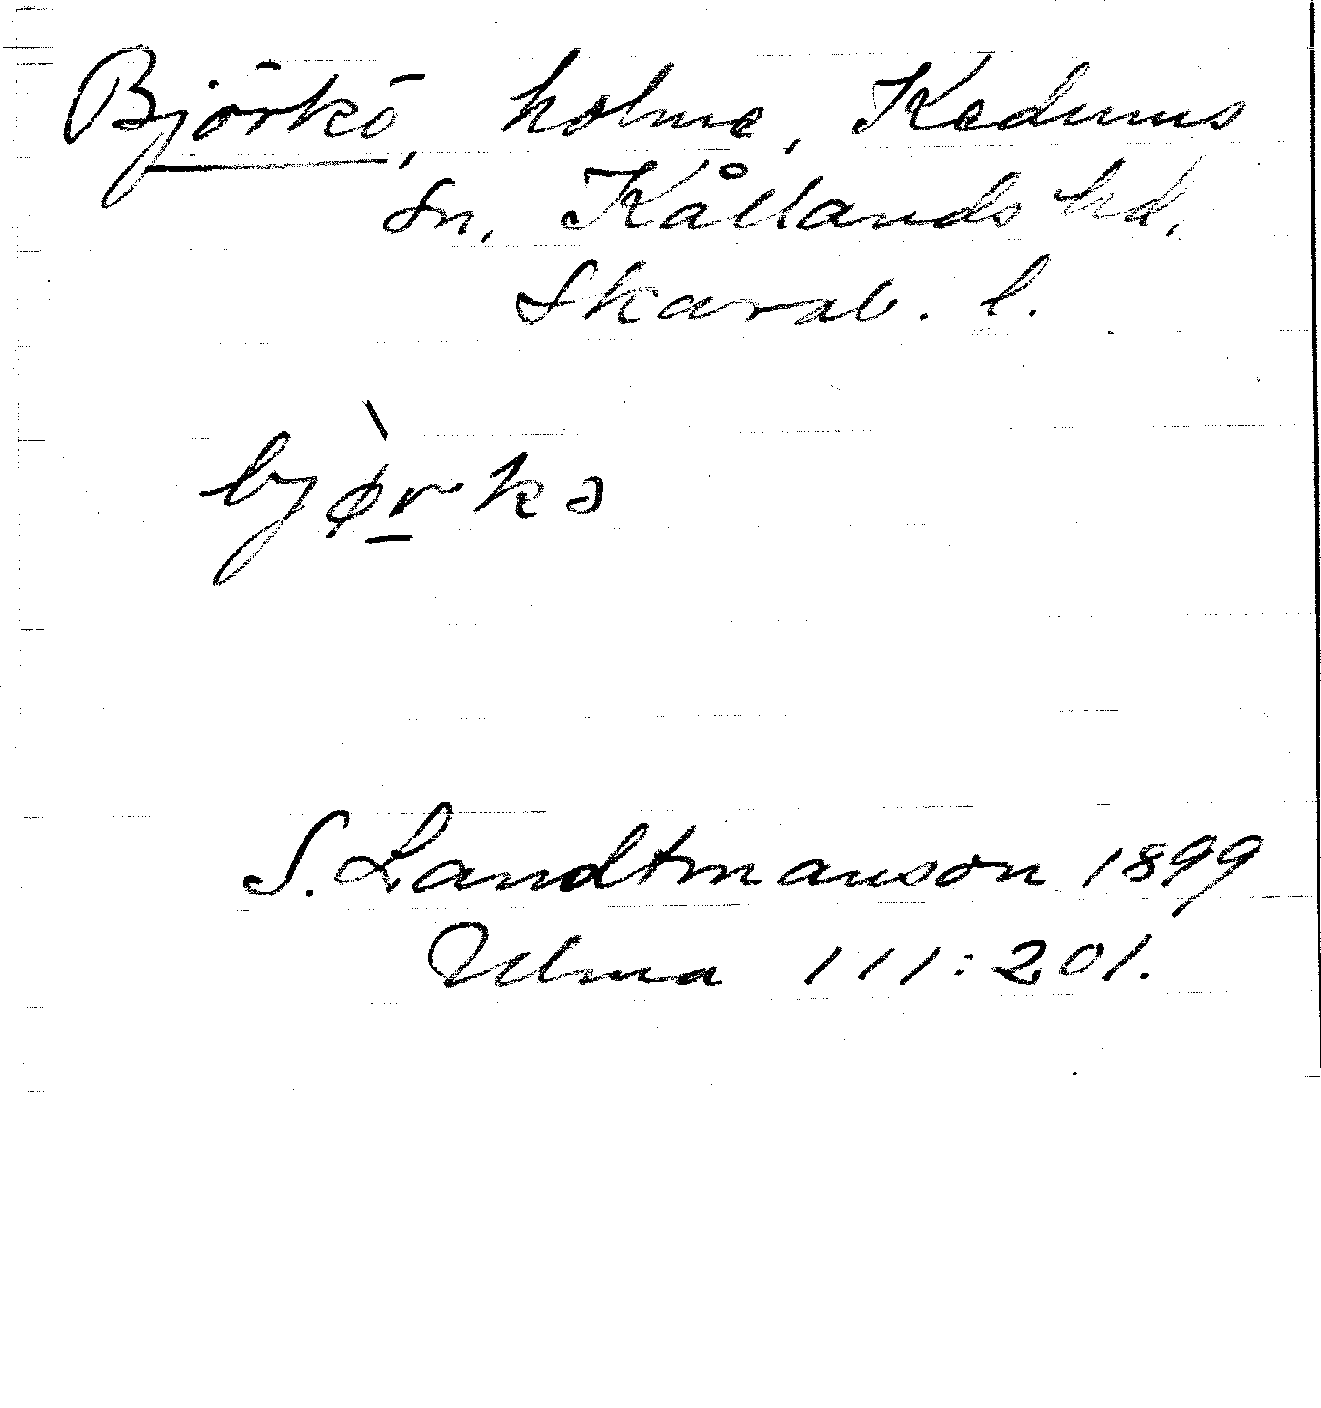 Björkö, holme, Kedums
sn, Kållands hd,
Skarab. l.
bjø̀r̲kə
S. Landtmanson 1899
Ulma 111:201.